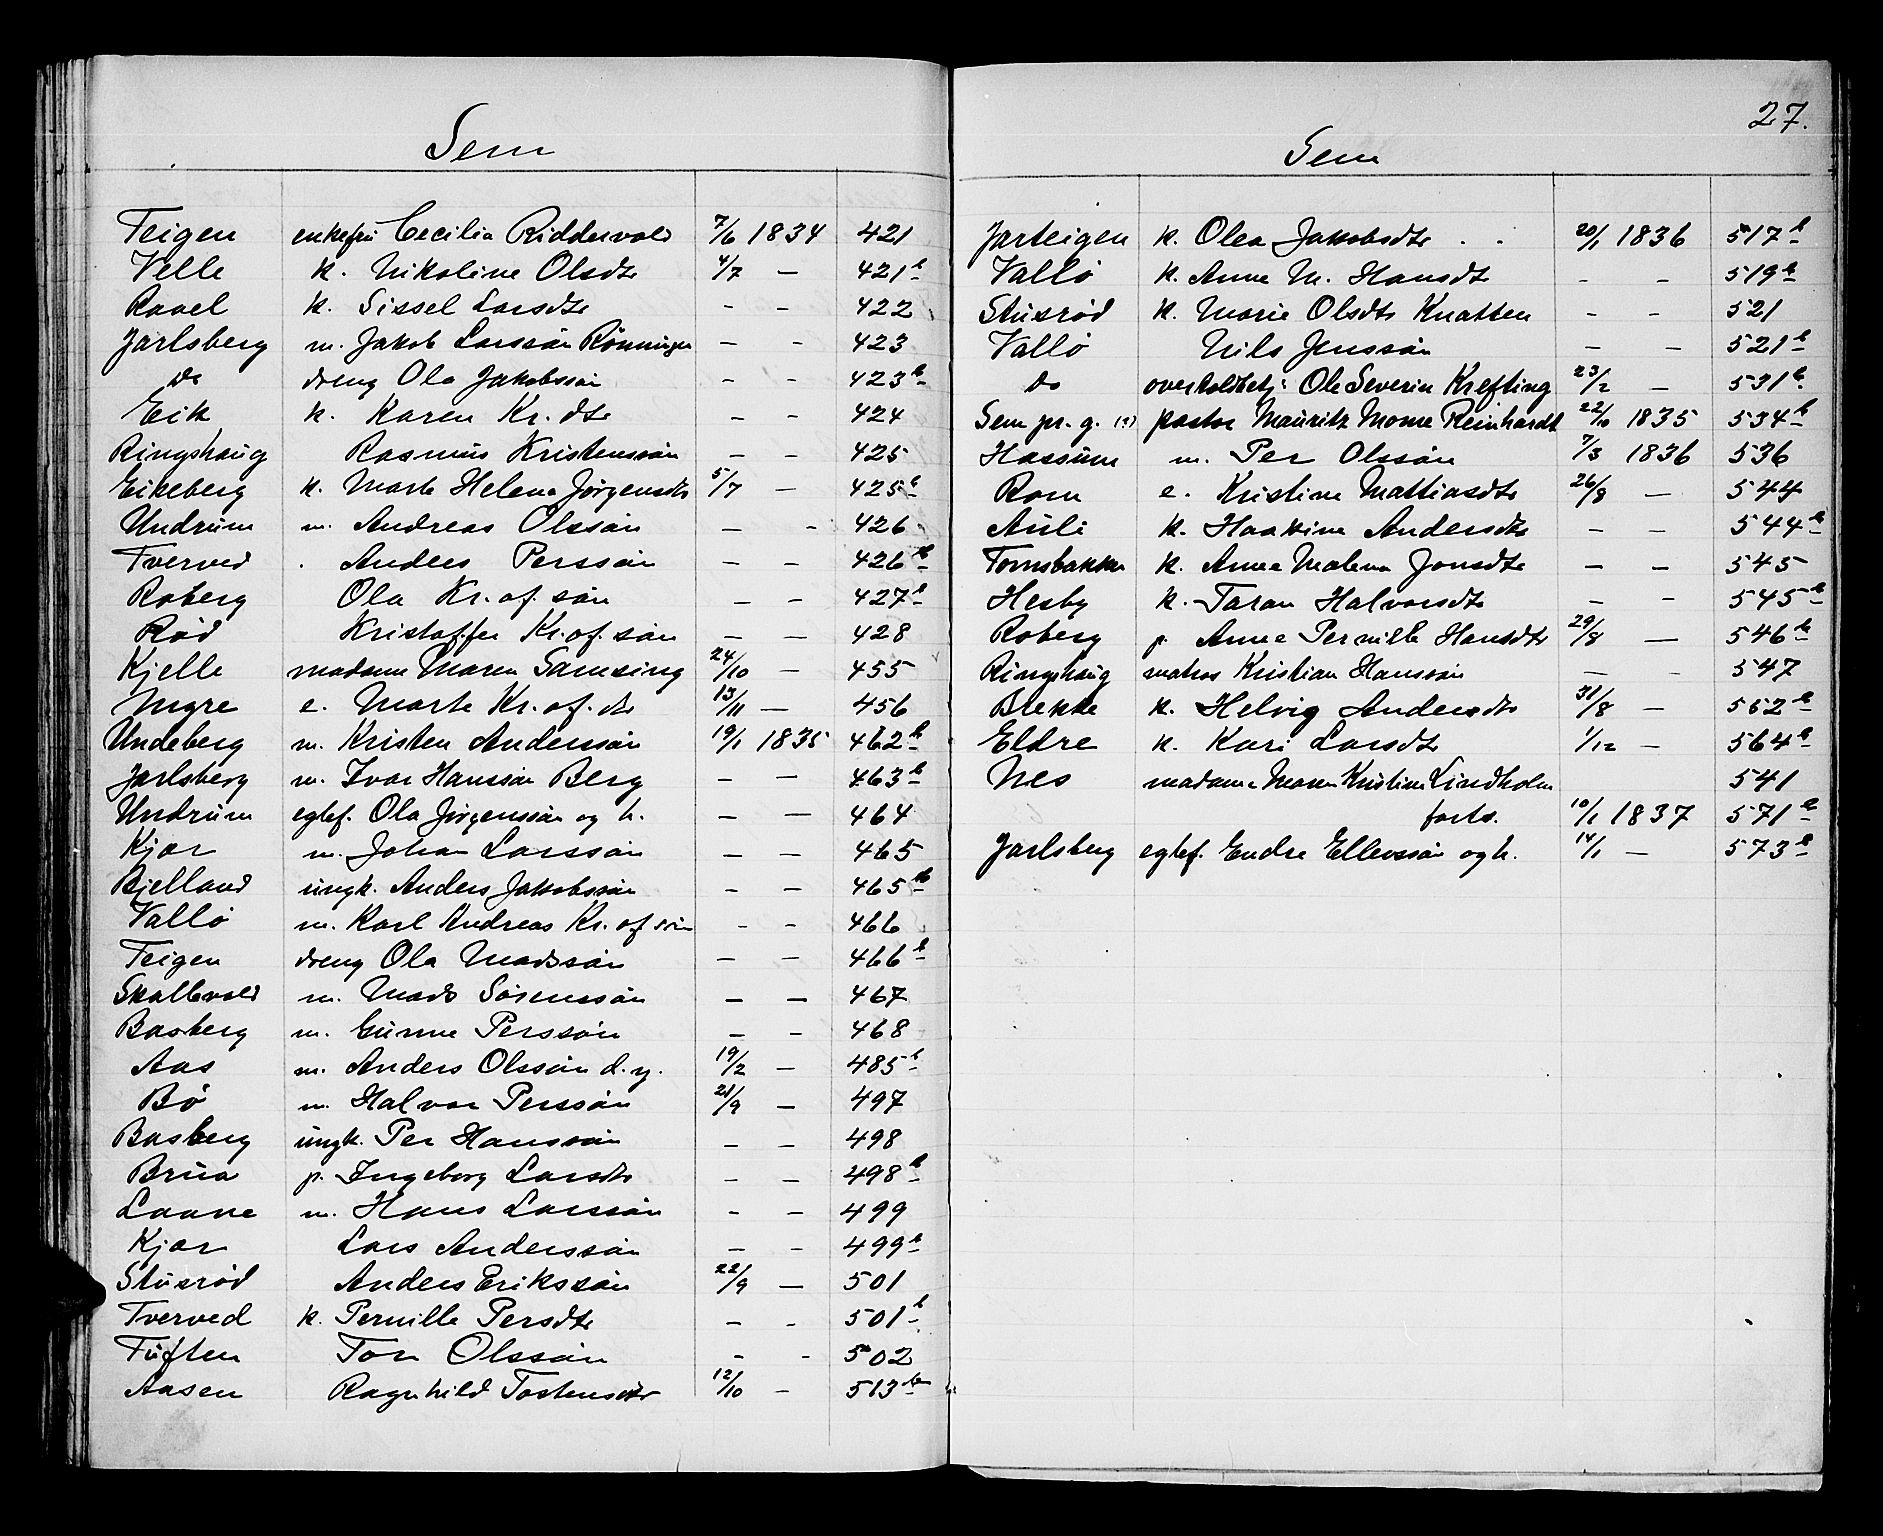 Sem
Teigen enkefru Cecilia Riddervold 7/6 1834 421
Velle k. Nikoline Olsdtr 4/7 — 421b
Ravel k. Sissel Larsdtr - - 422
Jarlsberg m. Jakob Larssøn Rønningen — - 423
do dreng Ola Jakobssøn - - 423b
Eik k. Karen Kr.dtr — - 424
Ringshaug Rasmus Kristenssøn — - 425
Eikeberg k. Marte Helena Jørgensdtr 5/7 — 425b
Undrum m. Andreas Olssøn — - 426
Tverved Anders Perssøn — — 426b
Roberg Ola Kr.of.søn — — 427b
Rød Kristoffer Kr.of.søn — — 428
Kjelle madame Maren Samsing 24/10 — 455
Myre e. Marte Kr.of.dtr 13/11 — 456
Undeberg m. Kristen Anderssøn 19/1 1835 462b
Jarlsberg m. Ivar Hanssøn Berg — — 463b
Undrum egtef. Ola Jørgenssøn og h. — — 464
Kjær m. Johan Larssøn — — 465
Bjelland ungk. Anders Jakobssøn - — 465b
Vallø m. Karl Andreas Kr.of.søn - - 466
Teigen dreng Ola Madssøn — — 466b
Skallevold m. Mads Sørenssøn — — 467
Basberg m. Gunne Perssøn — — 468
Aas m. Anders Olssøn d.y. 19/2 — 485b
Bø m. Halvor Perssøn 21/9 — 497
Basberg ungk. Per Hanssøn — — 498
Brua p. Ingeborg Larsdtr - — 498b
Laane m. Hans Larssøn - — 499
Kjær Lars Anderssøn — - 499b
Stusrød Anders Erikssøn 22/9 — 501
Tverved k. Pernille Persdtr - - 501b
Tuften Tor Olssøn - - 502
Aasen Ragnhild Tostensdtr 12/10 - 513b
27.
Sem
Jarteigen k. Olea Jakobsdtr . . 20/1 1836 517b
Vallø k. Anne M. Hansdtr - - 519b
Stusrød k. Marie Olsdtr Knatten - - 521
Vallø Nils Jenssøn — — 521b
do overtoldbetj: Ole Severin Krefting 23/2 — 531b
Sem pr.g. (?) pastor Mauritz Mome Reinhardt 22/10 1835 534b
Hassum m. Per Olssøn 7/3 1836 536
Rom e. Kristine Mattiasdtr 26/8 — 544
Auli k. Haakine Andersdtr - — 544b
Tornsbakken k. Anne Malena Jonsdtr — — 545
Hesby k. Taran Halvorsdtr — - 545b
Roberg p. Anne Pernille Hansdtr 29/8 — 546b
Ringshaug matros Kristian Hanssøn — - 547
Brekke k. Helvig Andersdtr 31/8 - 562b
Eldre k. Kari Larsdtr 1/12 — 564b
Nes madame Maren Kristine Lindholm 541
forts. 10/1 1837 571b
Jarlsberg egtef. Endre Ellevssøn og h. 14/1 — 573b